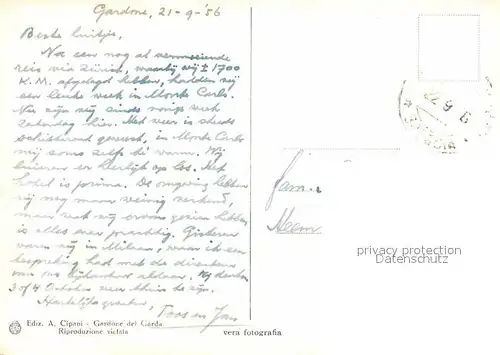 Gardone, 21-9-'56
Beste luitjes,
Na een nog al vermoeiende
reis via Zürich, waarbij wij ± 1700
K.M. afgelegd hebben, hadden wij
een leuke week in Monte Carlo.
Nu zijn wij sinds vorige week
Zaterdag hier. Het weer is steeds
schitterend geweest, in Monte Carlo
mij soms zelfs te warm. Wij
luieren er heerlijk op los. Het
hotel is prima. De omgeving hebben
wij nog maar weinig verkend,
maar wat wij ervan gezien hebben
is alles even prachtig. Gisteren
waren wij in Milaan, waar ik een
bespreking had met de directeur
van ons aldaar. Wij denken
3 of 4 October weer thuis te zijn.
Hartelijke groeten,
Toos en Jan
Fam.
Heem
privacy protection
AKpool.de
Ediz. A. Cipani - Gardone del Garda
Riproduzione vietata
vera fotografia